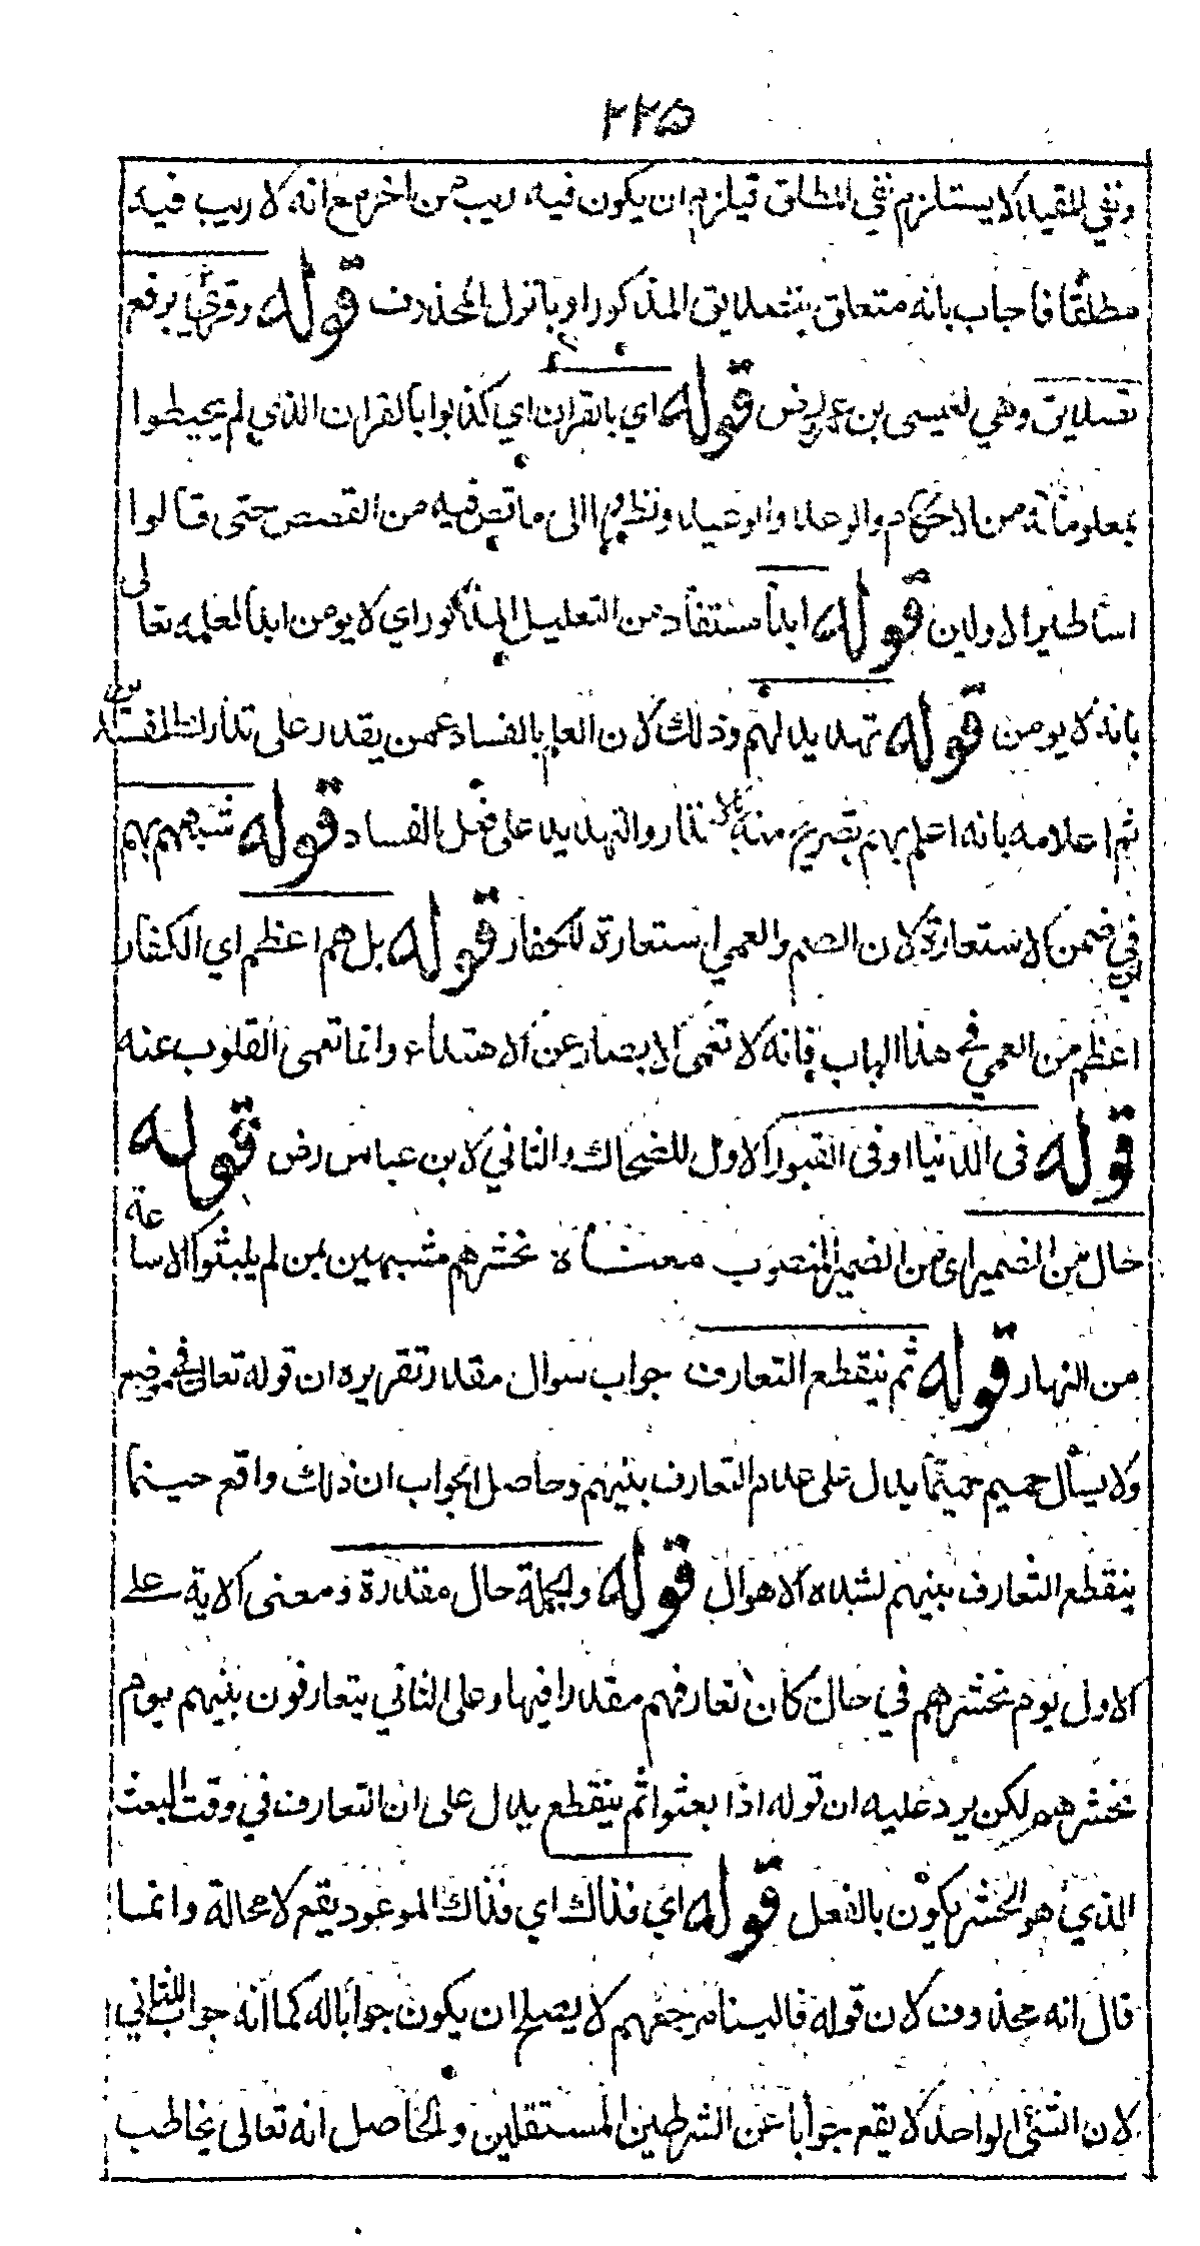 ۲۲۵
ونفي المقيد لا يستلزم نفي المطلق فيلزم ان يكون فيه ريب من اخر مع انه لا ريب فيه
مطلقا فاجاب بانه متعلق بتصديق المذكور او بانزل المحذوف قوله وقرئ برفع
تصديق وهي لعيسى بن عمر رض قوله اي بالقران اي كذبوا بالقران الذي لم يحيطوا
بمعلوماته من الاحكام والوعد والوعيد ونظرهم الى ما قص فيه من القصص حتى قالوا
اساطير الاولين قوله ابدا مستفاد من التعليل المذكور اي لا يومن ابدا لعلمه تعالى
بانه لا يومن قوله تهديد لهم وذلك لان العلم بالفساد عمن يقدر على تدارك المفسدين
ثم اعلامه بانه اعلم بهم تصريح منه بالانذار والتهديد على فعل الفساد قوله شبههم بهم
في ضمن الاستعارة لان الصم والعمي استعارة للكفار قوله بل هم اعظم اي الكفار
اعظم من العمي في هذا الباب فانه لا تعمى الابصار عن الاهتداء وانما تعمى القلوب عنه
قوله في الدنيا او في القبور الاول للضحاك والثاني لابن عباس رض قوله
حال من الضمير اي من الضمير المنصوب معناه نحشرهم مشبهين بمن لم يلبثوا الا ساعة
من النهار قوله ثم ينقطع التعارف جواب سوال مقدر تقريره ان قوله تعالى في موضع
ولا يسأل حميم حميما يدل على عدم التعارف بينهم وحاصل الجواب ان ذلك واقع حينما
ينقطع التعارف بينهم لشدة الاهوال قوله والجملة حال مقدرة ومعنى الاية على
الاول يوم نحشرهم في حال كان تعارفهم مقدرا فيها وعلى الثاني يتعارفون بينهم يوم
نحشرهم لكن يرد عليه ان قوله اذا بعثوا ثم ينقطع يدل على ان التعارف في وقت البعث
الذي هو الحشر يكون بالفعل قوله اي فذاك اي فذاك الموعود يقع لا محالة وانما
قال انه محذوف لان قوله فالينا مرجعهم لا يصلح ان يكون جوابا له كما انه جواب للثاني
لان الشئ الواحد لا يقع جوابا عن الشرطين المستقلين والحاصل انه تعالى يخاطب